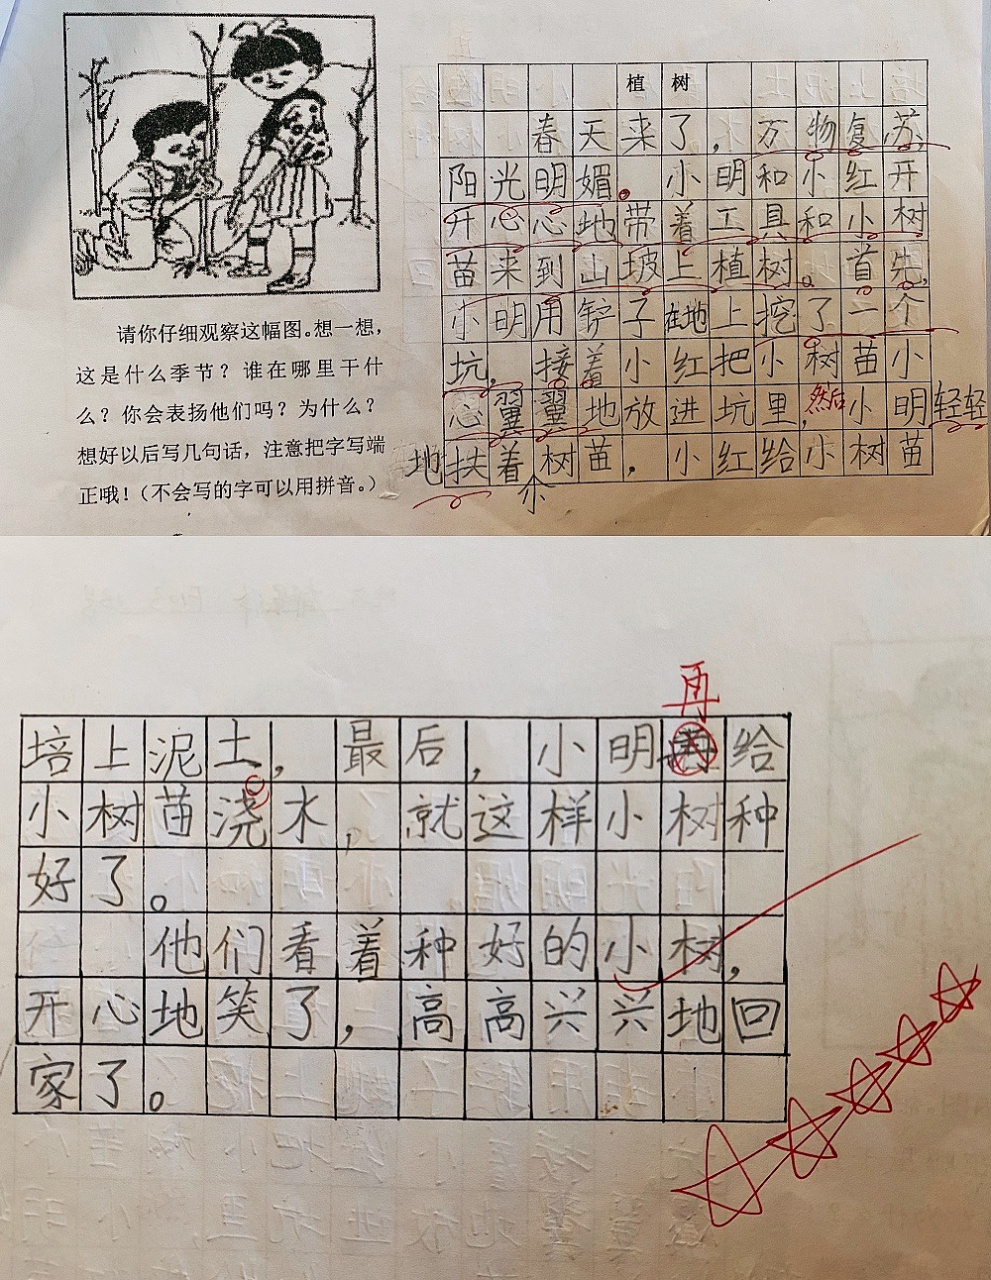 请你仔细观察这幅图。想一想，
这是什么季节？谁在哪里干什
么？你会表扬他们吗？为什么？
想好以后写几句话，注意把字写端
正哦！（不会写的字可以用拼音。）
植树
春天来了，万物复苏，
阳光明媚。小明和小红开
开心心地带着工具和小树
苗来到山坡上植树。首先，
小明用铲子在地上挖了一个
坑，接着小红把小树苗小
心翼翼地放进坑里，然后小明轻轻
地扶着小树苗，小红给小树苗
再
培上泥土，最后，小明再给
小树苗浇水，就这样小树种
好了。
他们看着种好的小树，
开心地笑了，高高兴兴地回
家了。